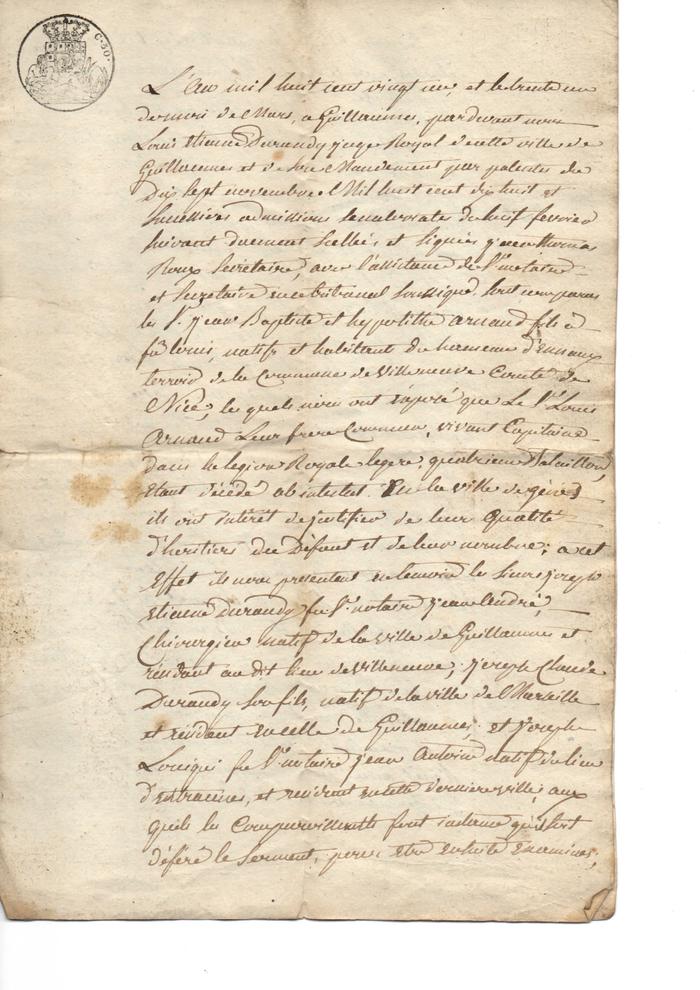 C. 50.
L'an mil huit cent vingt un, et le trente un
du mois de Mars, a Guillaumes, pardevant nous
Louis Etienne Durandy juge Royal de cette ville de
Guillaumes et de son Mandement par patentes du
Dix sept novembre Mil huit cent dix huit et
successives admissions senatoriale du huit fevrier
suivant duement scellés et signés, jean thomas
Roux Secretaire, avec l'assistance du Sr notaire
et Secretaire en ce tribunal soussigné, sont comparus
les Srs jean Baptiste et hypolithe arnaud fils à
fû louis, natifs et habitant du hameau d'Enaux
terroir de la Commune de Villeneuve Comté de
Nice, le quels nous ont exposé que Le Sr Louis
Arnaud Leur frere Commun, vivant Capitaine
dans la legion Royale legere, quatrieme Bataillon,
étant décédé ab intestat En la ville de gènes
ils ont intérêt de justifier de leur qualité
d'heritiers du Défunt et de leur nombre; a cet
Effet ils nous presentent les Sieurs joseph
etienne Durandy fu Sr notaire jean andré,
Chirurgien natif de la ville de Guillaumes et
résidant au dit lieu de villeneuve; joseph Claude
Durandy son fils, natif de la ville de Marseille
et résidant en celle de Guillaumes; et joseph
fu Sr notaire jean Antoine natif du lieu
d'entraunes, et residant en cette derniere ville, aux
quels les Comparoissants font instance qu'il soit
déféré le Serment, pour etre ensuite examinés,